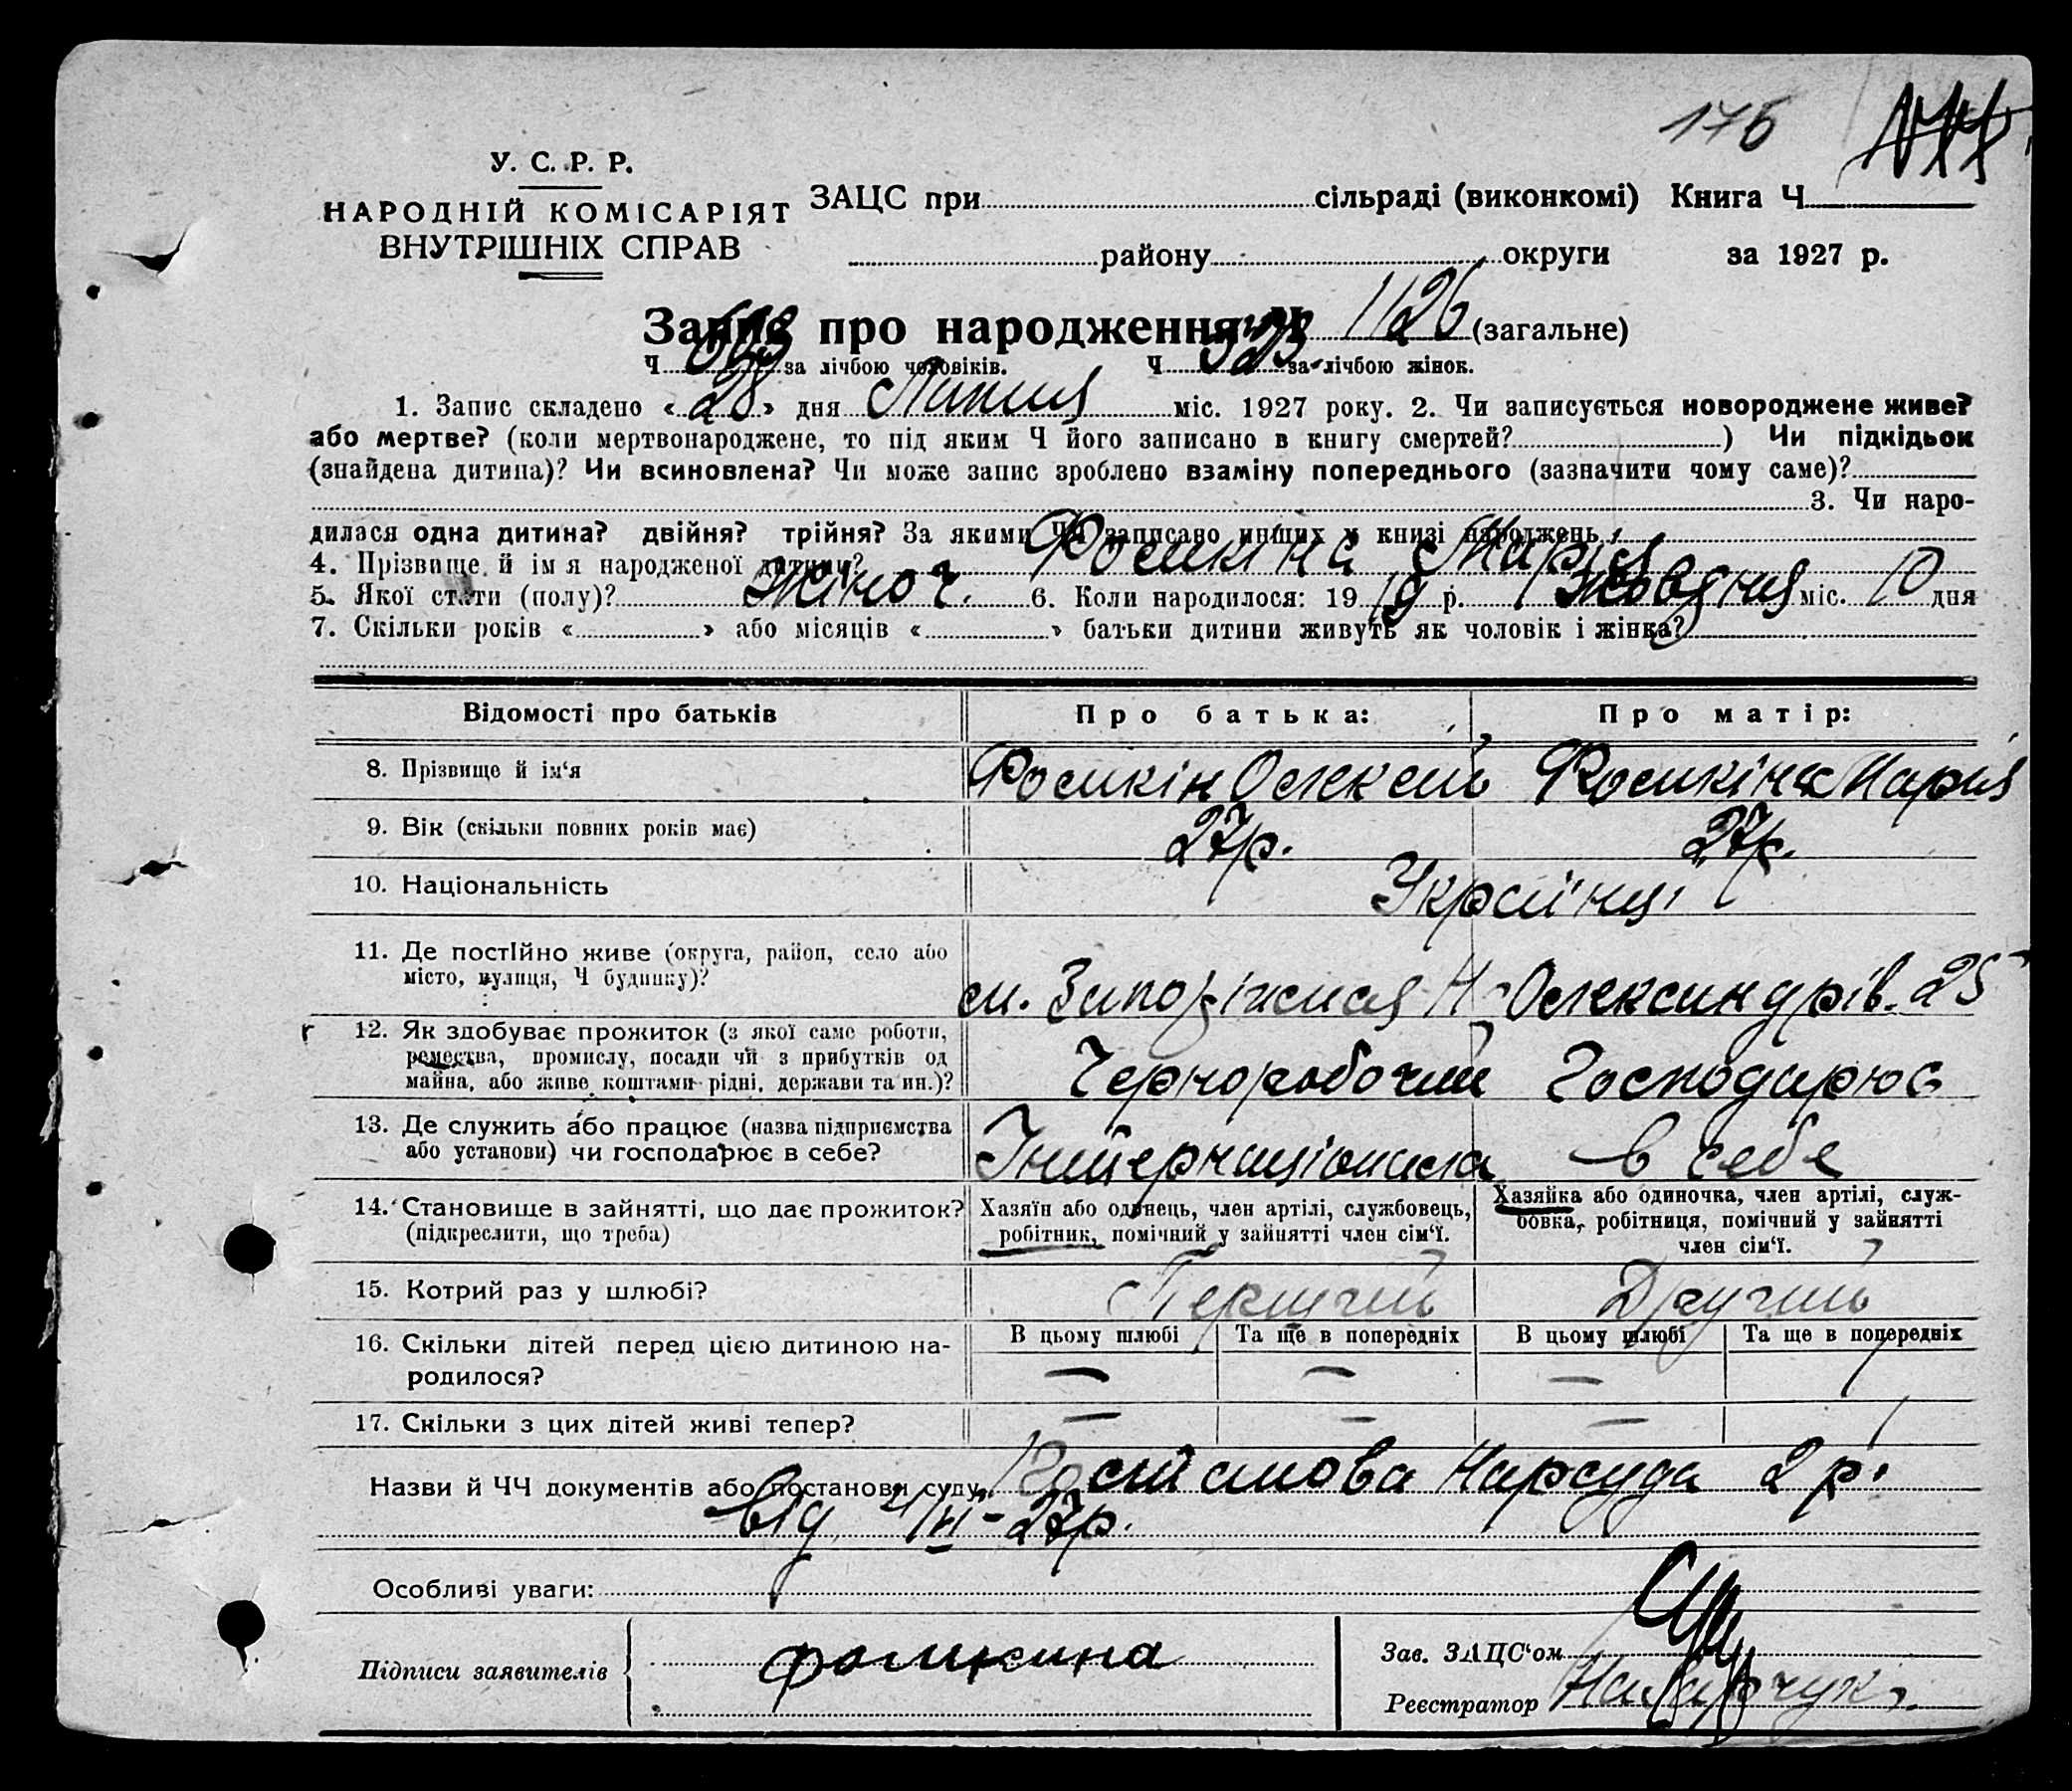 176
У. С. Р. Р.
НАРОДНІЙ КОМІСАРІЯТ
ВНУТРІШНІХ СПРАВ
ЗАЦС при сільраді (виконкомі) Книга Ч
району округи за 1927 р.
Запис про народження Ч 1126 (загальне)
Ч 603 за лічбою чоловіків. Ч 523 за лічбою жінок.
1. Запис складено « 28 » дня Липня міс. 1927 року. 2. Чи записується новороджене живе?
або мертве? (коли мертвонароджене, то під яким Ч його записано в книгу смертей? ) Чи підкідьок
(знайдена дитина)? Чи всиновлена? Чи може запис зроблено взаміну попереднього (зазначити чому саме)?
3. Чи наро-
дилася одна дитина? двійня? трійня? За якими ЧЧ записано инших у книзі народжень
4. Прізвище й ім я народженої дитини? Фомкіна Марія
5. Якої стати (полу)? Жіноч. 6. Коли народилося: 19 19 р. Жовтня міс. 10 дня
7. Скільки років « » або місяців « » батьки дитини живуть як чоловік і жінка?
Відомості про батьків Про батька: Про матір:
8. Прізвище й ім‘я Фомкін Олексій Фомкіна Марія
9. Вік (скільки повних років має) 27р. 27р.
10. Національність Українці
11. Де постійно живе (округа, район, село або
місто, вулиця, Ч будинку)?
м. Запоріжжя Н-Олександрів. 25
12. Як здобуває прожиток (з якої саме роботи,
ремества, промислу, посади чи з прибутків од
майна, або живе коштами рідні, держави та ин.)?
Чорноробочий Господарює
13. Де служить або працює (назва підприємства
або установи) чи господарює в себе?
Інтернаціонала в себе
14. Становище в зайнятті, що дає прожиток?
(підкреслити, що треба)
Хазяїн або одинець, член артілі, службовець,
робітник, помічний у зайнятті член сім‘ї.
Хазяйка або одиночка, член артілі, служ-
бовка, робітниця, помічний у зайнятті
член сім‘ї.
15. Котрий раз у шлюбі? Перший Другий
16. Скільки дітей перед цією дитиною на-
родилося?
В цьому шлюбі Та ще в попередніх В цьому шлюбі Та ще в попередніх
— — — 1
17. Скільки з цих дітей живі тепер? — — — 1
Назви й ЧЧ документів або постанови суду Постанова Нарсуда 2 р.
від
Особливі уваги:
Підписи заявителів фомкина
Зав. ЗАЦС‘ом
Реєстратор